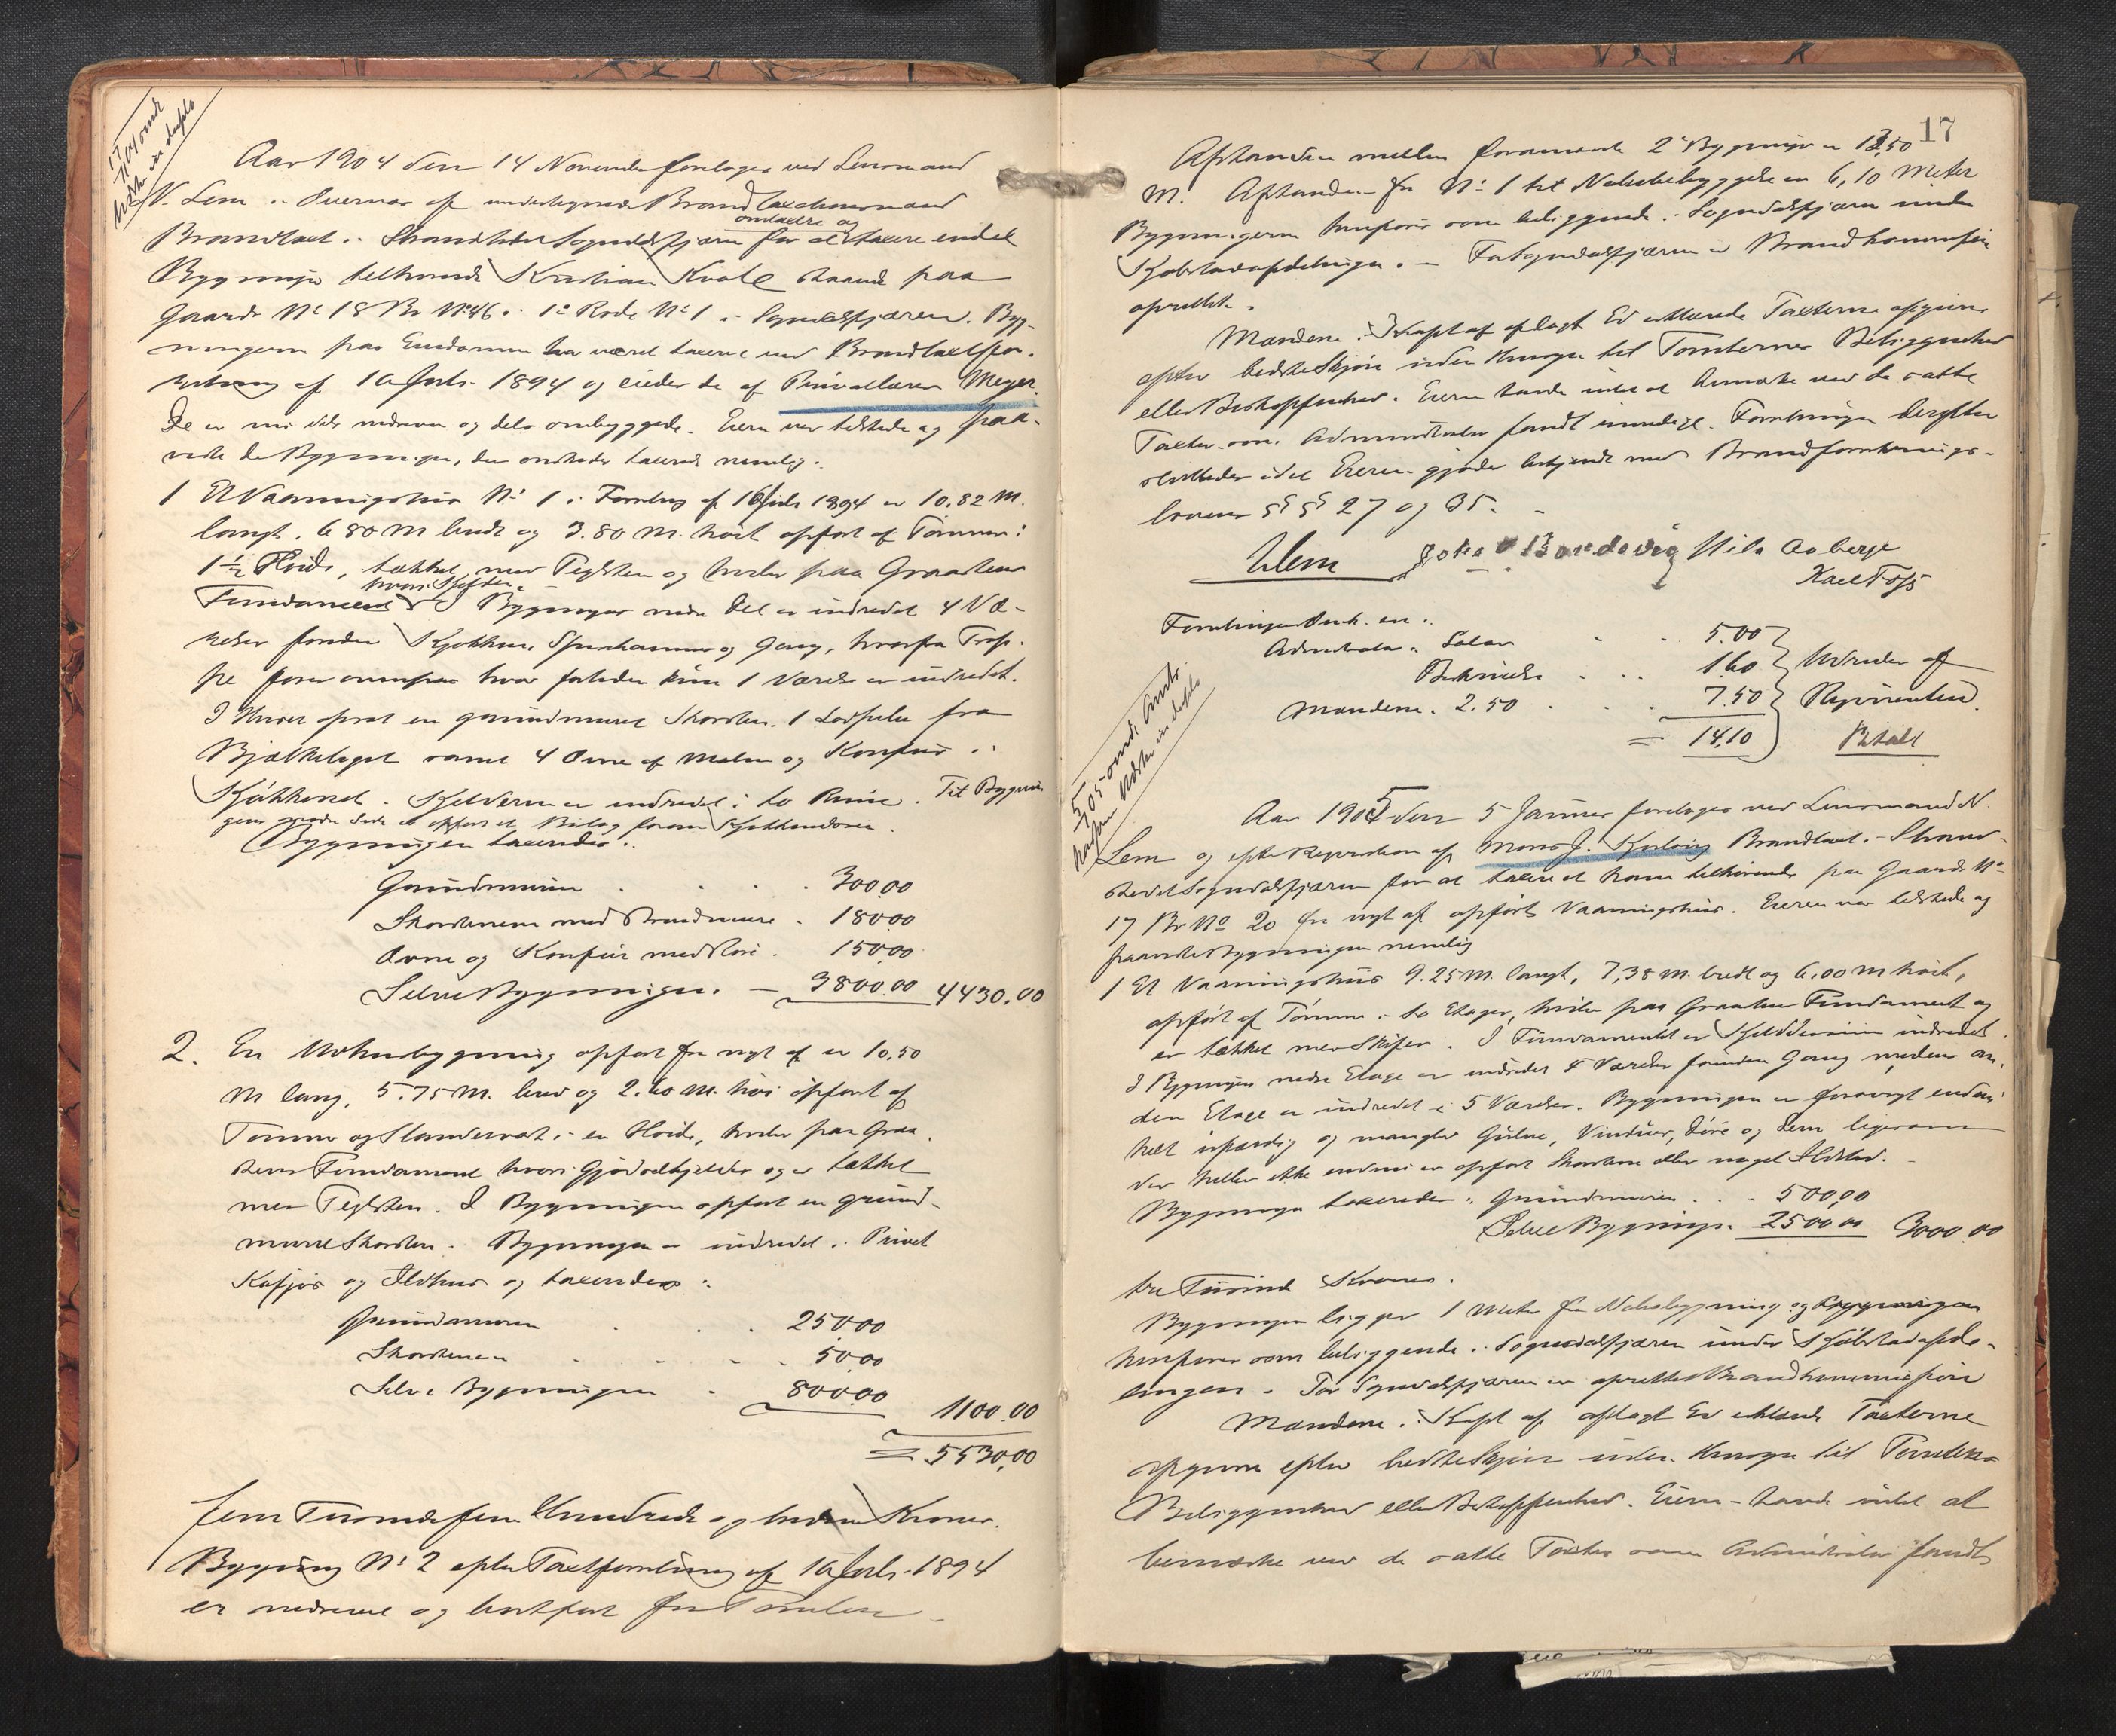 17/11 04 omd
Aar 1904 den 14 November foretoges ved Lensmand
V. Lem i Overvær af undertegnede Brandtaxtmænd
omtaxere og
Brandtaxt i Strandstedet Sogndalsfjæren for at taxere endel
Bygninger tilhørende Kristian Kvale staaende paa
Gaards No 18 Br No 46 i 1e Rode No 1 i Sogndalsfjæren. Byg-
ningerne paa Eiendommen har været taxeret ved Brandtaxtfor-
retning af 16 Juli 1894 og eiedes da af Privatlærer Meyer.
De er nu dels nedrevne og dels ombyggede. Eieren var tilstede og paa-
viste de Bygninger, der ønskedes taxerede nemlig:
1 Et Vaaningshus No 1 i Forretning af 16 Juli 1894 er 10.82 M.
langt. 6.80 M bredt og 3.80 M. høit opført af Tømmer i
1 1/2 Høide, tækket med Teglsten og hviler paa Graastens
hvori Kjelder
Fundament. I Bygningens nedre Del er indredet 4 Væ-
relser foruden Kjøkken, Spisekammer og Gang, hvorfra Trap-
pe fører ovenpaa hvor forleden kun 1 Værelse er indredet.
I Huset opsat en grundmuret Skorsten. 1 Lodpibe fra
Bjælkelaget samt 4 Ovne af Malm og Komfur i
Kjøkkenet. Kjelderen er indredet i to Rum. Til Bygnin-
gens søndre Side er opført et Bislag foran Kjøkkendøren.
Bygningen taxeredes:
Grundmuren . . . . 300.00
Skorstenene med Brandmure . 180.00
Ovne og Komfur med Rør . 150.00
Selve Bygningen. — 3800.00 4430.00
2. En Udhusbygning opført fra nyt af er 10.50
M lang, 5.75 M. bred og 2.60 M. høi opført af
Tømmer og Standerværk i en Høide, hviler paa Graa-
stens Fundament hvori Gjødselkjelder og er tækket
med Teglsten. I Bygningen opført en grund-
muret Skorsten. Bygningen er indredet i Privet
Kufjøs og Ildhus og taxeredes:
Grundmuren . . . 250.00
Skorstenen . . . . 50.00
Selve Bygningen . 800.00
1100.00
= 5530.00
fem Tusinde fem Hundrede og tredive Kroner.
Bygning No 2 efter Taxtforretning af 16 Juli 1894
er nedrevet og bortført fra Tomten.
17
Afstanden mellem foranførte 2de Bygninger er 12.50
M. Afstanden fra No 1 til Nabobebyggelse er 6,10 Meter
Bygningerne henføres som beliggende i Sogndalsfjæren under
Kjøbstadafdelingen. — For Sogndalsfjæren er Brandkommission
oprettet.
Mændene i Kraft af aflagt Ed erklærede Taxterne afgivne
efter bedste Skjøn uden Hensyn til Tomternes Beliggenhed
eller Beskaffenhed. Eieren havde intet at bemærke ved de satte
Taxter som Administrator fandt rimelige. Forretningen derefter
sluttedes idet Eieren gjordes bekjendt med Brandforsikrings-
lovens §§ 27 og 35.
VLem Johs Nils Aaberge
Karl Foss
Forretningens Omk. er:
Administrator i Salær . . 5.00
Beskrivelse . . . 1.60 Udredes af
Mændene. 2.50 . . . 7.50 Rekvirenten.
= 14.10 Betalt
5/1 05 omd. Amts
Aar 1905 den 5 Januar foretoges ved Lensmand V.
Lem og efter Rekvisition af Mons J. Brandtaxt i Strand-
stedet Sogndalsfjæren for at taxere et ham tilhørende paa Gaards No
17 Br No 20 fra nyt af opført Vaaningshus. Eieren var tilstede og
paaviste Bygningen nemlig
1 Et Vaaningshus 9.25 M. langt, 7,38 M. bredt og 6,00 M høit,
opført af Tømmer i to Etager, hviler paa Graastens Fundament og
er tækket med Skifer. I Fundamentet er Kjelderrum indredet.
I Bygningens nedre Etage er indredet 4 Værelser foruden Gang, medens an-
den Etage er indredet i 5 Værelser. Bygningen er forøvrigt endnu
helt ufærdig og mangler Gulve, Vinduer, Døre og Lem ligesom
der heller ikke endnu er opført Skorstene eller noget Ildsted.
Bygningen taxeredes: Grundmuren . . . 500.00
Selve Bygningen. 2500.00 3000.00
tre Tusind Kroner.
Bygningen ligger 1 Meter fra Nabobygning og Bygningen
henføres som beliggende i Sogndalsfjæren under Kjøbstadafde-
lingen. For Sogndalsfjæren er oprettet Brandkommission
Mændene i Kraft af aflagt Ed erklærede Taxterne
afgivne efter bedste Skjøn uden Hensyn til Tomtens
Beliggenhed eller Beskaffenhed. Eieren havde intet at
bemærke ved de satte Taxter som Administrator fandt